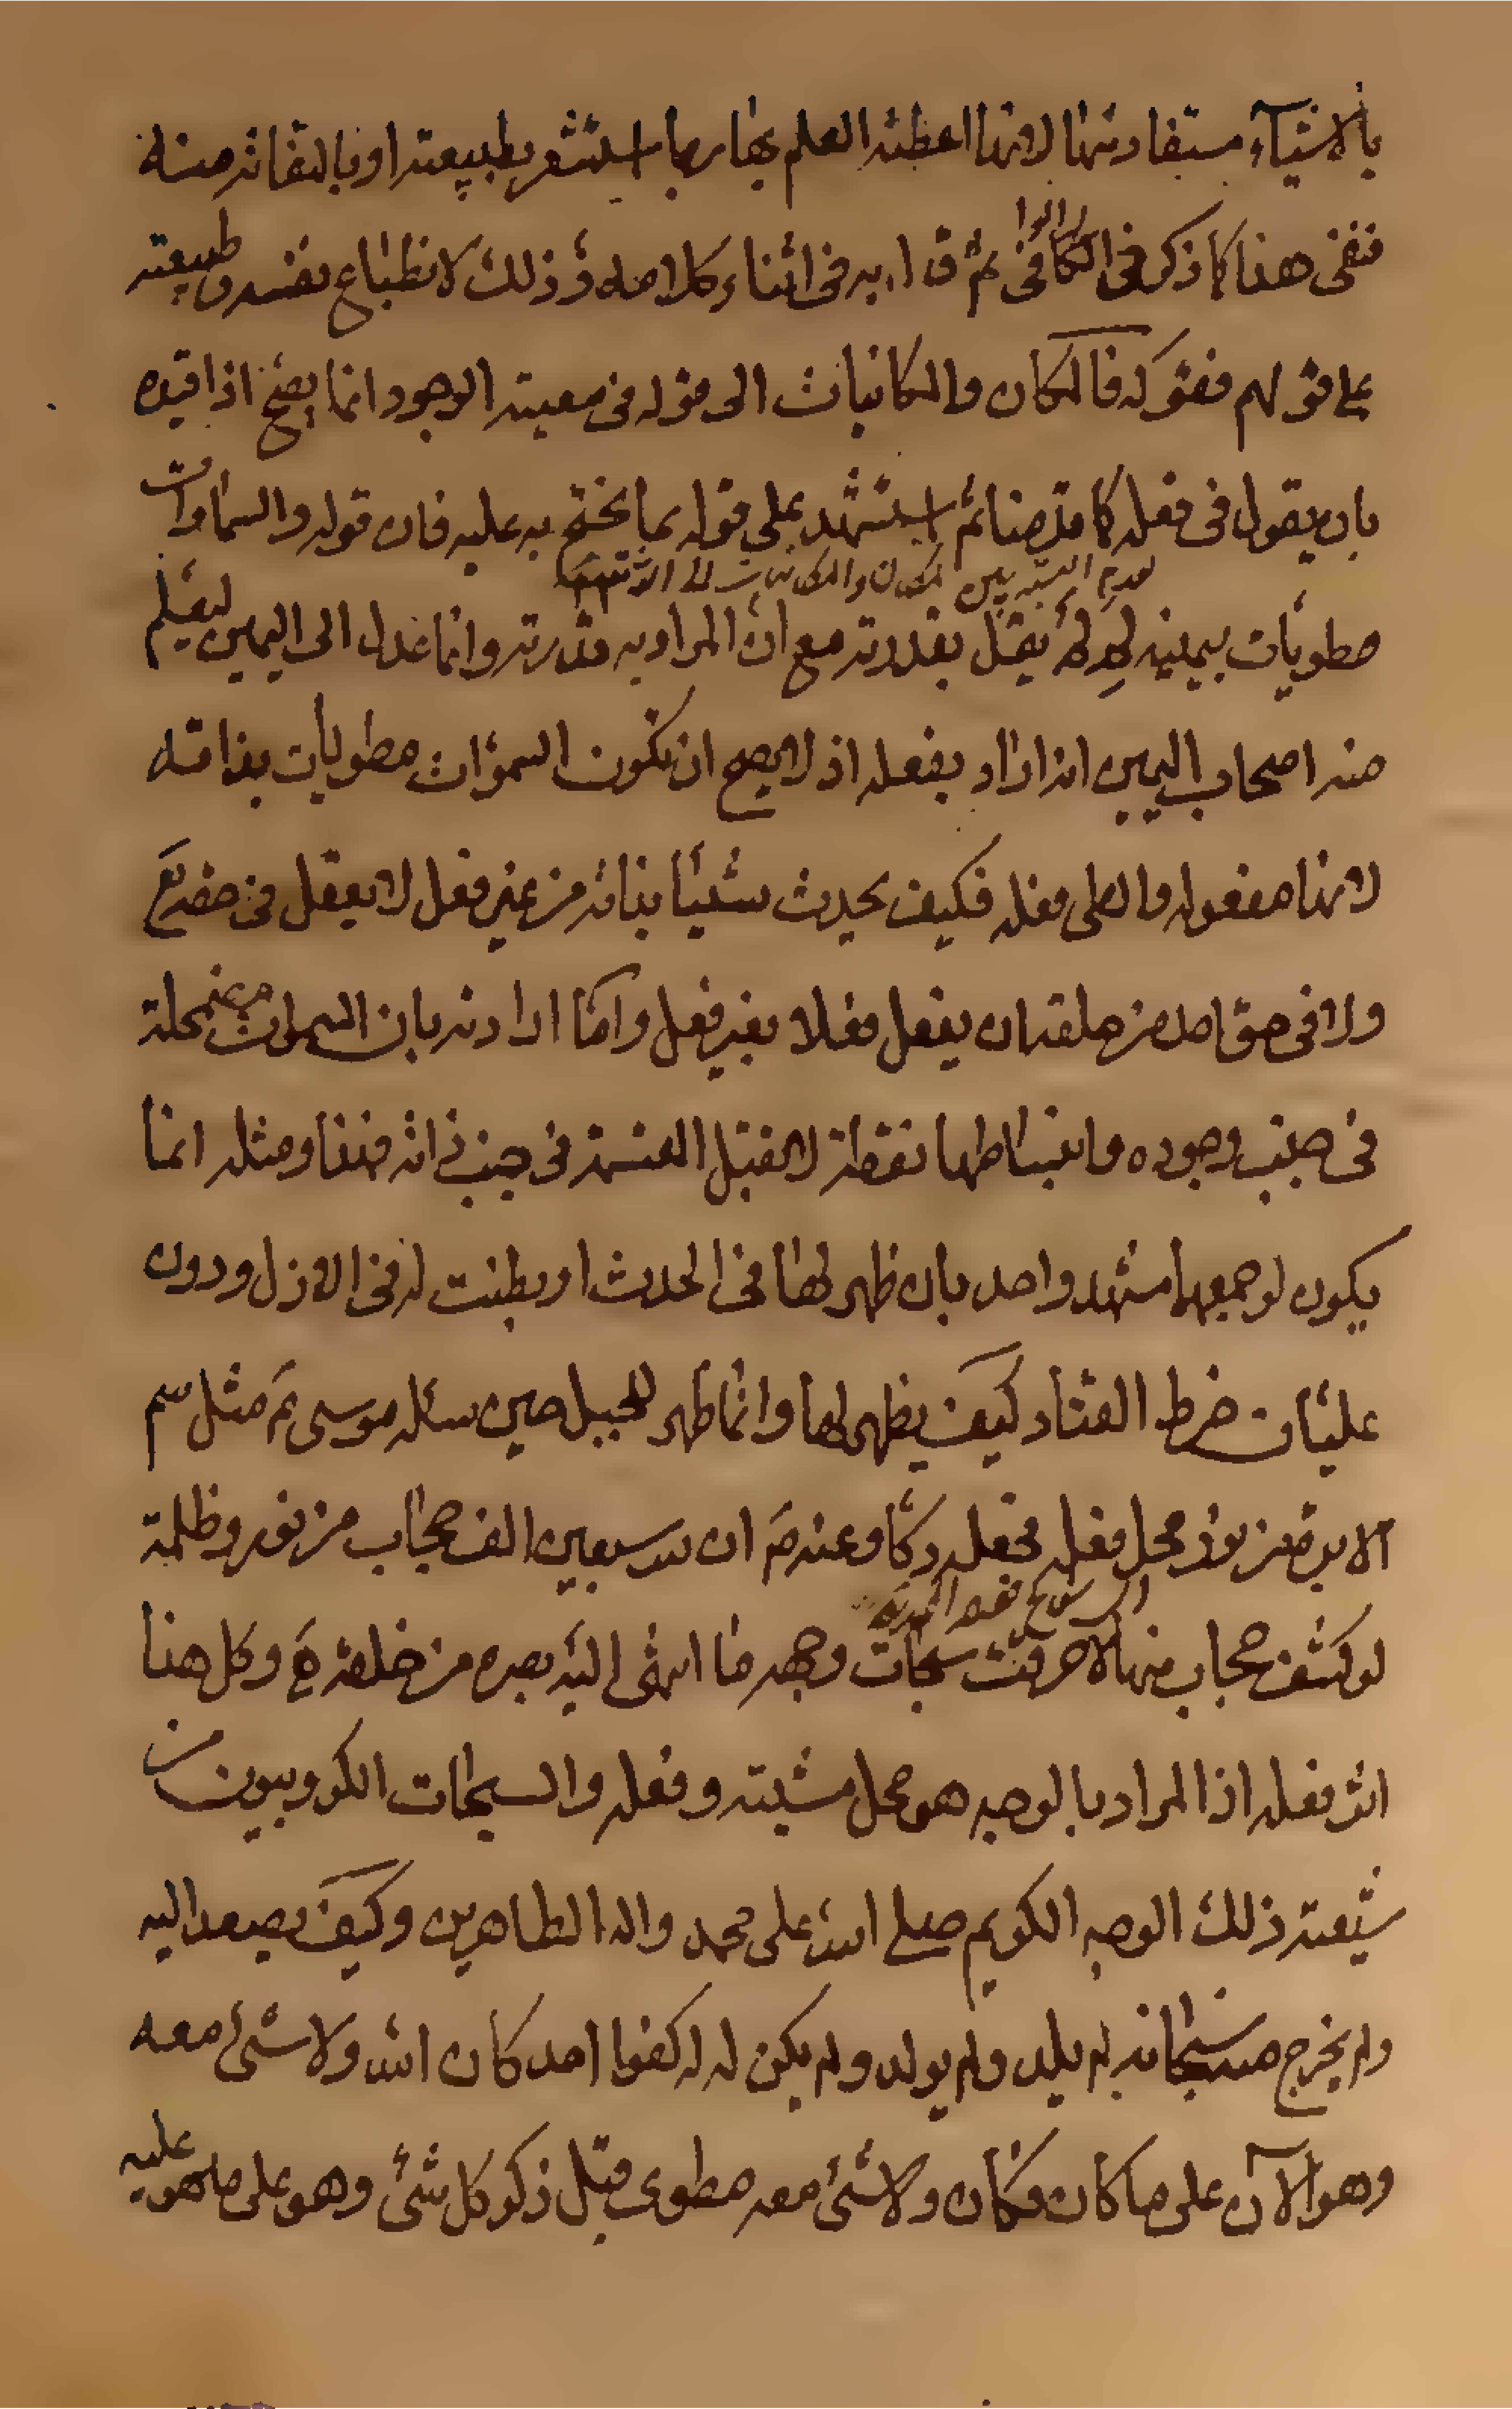 بالاشیآء مستفاد منها لانها اعطته العلم بها ربما استشعر بطبیعته او بالتفاته منه
فنفی هذا کما ذکر فی الکافی ثم ق ا به فی اثناء کلامه و ذلک لانطباع نفسه و طبیعته
علی قولهم فقوله فالمکان والمکانیات الی قوله فی معیته الوجود انما یصح اذا قیده
بان یقول فی فعله کما قدمنا ثم استشهد علی قوله بما یحتج به علیه فان قوله والسماوات
لعدم البشریین المکان والمکانیات
مطویات بیمینه لم یقل بقدرته مع ان المراد به قدرته وانما عدل الی الیمین لیعلم
منه اصحاب الیمین انه اراد بفعله اذ لا یصح ان تکون السموات مطویات بذاته
لانها مفعوله والطی فعله فکیف یحدث شیئا بذاته من غیر فعل لا یعقل فی حقه تع
ولا فی حق احد من خلقه ان یفعل فعلا بغیر فعل وامّا ارادته بان السموات مضمحلة
فی جنب وجوده وانبساطها نقطة لا تقبل القسمة فی جنب ذاته فهذا ومثله انما
یکون لو جمعهما مشهد واحد بان ظهر لها فی الحدث او بطنت له فی الازل ودون
علیّان خرط القتاد کیف یظهر لها وانما ظهر للجبل حین سئله موسی ع مثل سم
الابرة من نور محل فعله فجعله دکّا وعنه ص ان لله سبعین الف حجاب من نور وظلمة
لو کشف حجاب منها لاحرقت سبحات وجهه ما انتهی الیه بصره من خلقه و کل هذا
اثر فعله اذا المراد بالوجه هو محل مشیته و فعله والسبحات الکروبیون من
شیعة ذلک الوجه الکریم صلی الله علی محمد واله الطاهرین و کیف یصعد الیه
ولم یخرج منه سبحانه لم یلد ولم یولد ولم یکن له کفوا احد کان الله ولا شیء معه
وهو الآن علی ما کان فکان ولا شیء معه مطوی قبل ذکر کل شیء وهو علی ما هو علیه